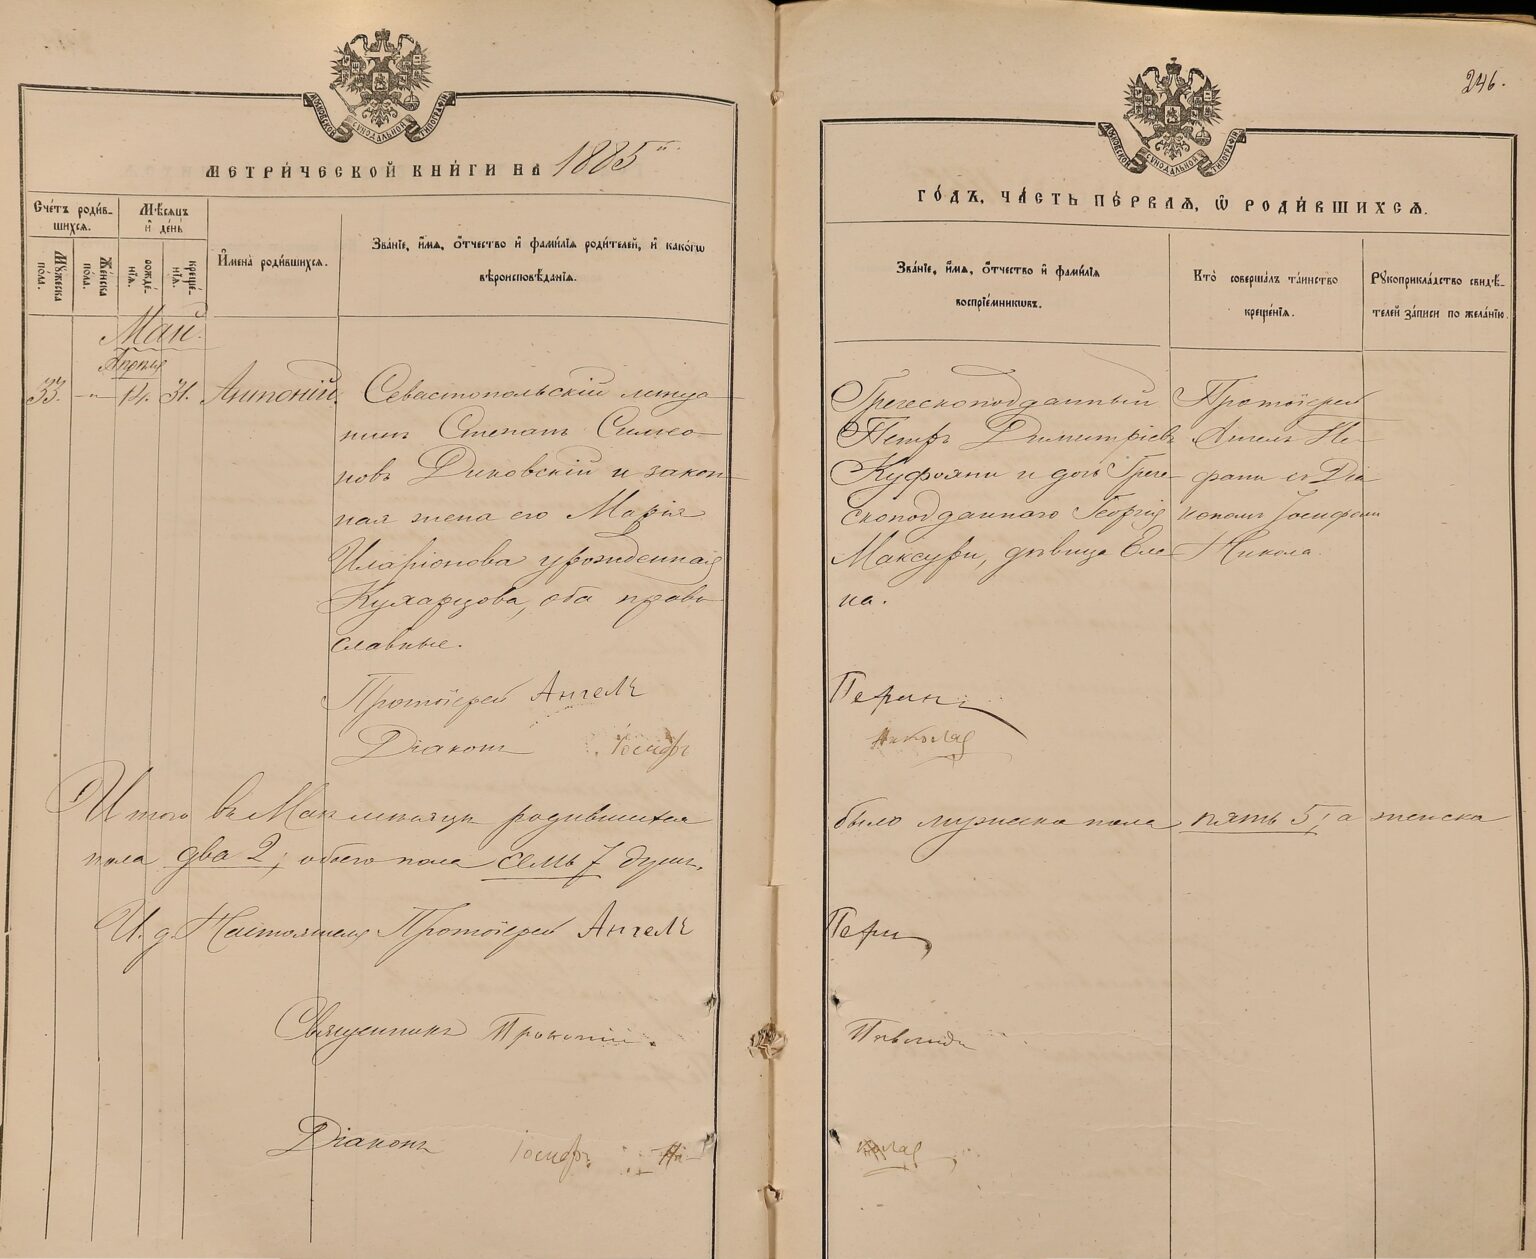 МОСКОВСКОЙ СѴНОДАЛЬНОЙ ТИПОГРАФІИ
МЕТРИ́ЧЕСКОЙ КНИ́ГИ НА 1885й
Сче́тъ роди́в-
шихсѧ.
Мѣ́сѧцъ
и҆ де́нь
Мꙋ́жеска
по́ла.
Же́нска
по́ла.
рожде́-
нїѧ.
креще́-
нїѧ.
И҆мена̀ роди́вшихсѧ.
Зва́нїе, и҆́мѧ, ѻ҆́тчество и҆ фами́лїѧ роди́телей, и҆ како́гѡ
вѣроисповѣ́данїѧ.
Май.
Апрѣля
33. -"- 14. 31. Антоній. Севастопольскій мѣща-
нинъ Степанъ Симео-
новъ Диковскій и закон-
ная жена его Марія
Иларіонова урожденная
Кухарцова, оба право-
славные.
Протоіерей Ангелъ
Діаконъ Іосифъ
Итого въ Маѣ мѣсяцѣ родившихся
пола два 2; обоего пола семь 7 душъ.
И. д. Настоятеля Протоіерей Ангелъ
Священникъ Прокопій
Діаконъ Іосифъ Ни-
246.
МОСКОВСКОЙ СѴНОДАЛЬНОЙ ТИПОГРАФІИ
ГО́ДЪ, ЧА́СТЬ ПЕ́РВАѦ, Ѡ҆ РОДИ́ВШИХСѦ.
Зва́нїе, и҆́мѧ, ѻ҆́тчество и҆ фами́лїѧ
воспрїе́мникѡвъ.
Кто̀ соверша́лъ та́инство
креще́нїѧ.
Рꙋкоприкла́дство свидѣ́-
телей за́писи по жела́нїю.
Греческоподданный
Петръ Димитріевъ
Куфояни и дочь Грече-
скоподданнаго Георгія
Максури, дѣвица Еле-
на.
Протоіерей
Ангелъ Пе-
рини съ Діа
кономъ Іосифомъ
Никола.
Перинъ
Николая
было мужеска пола пять 5, а женска
Перин
колая